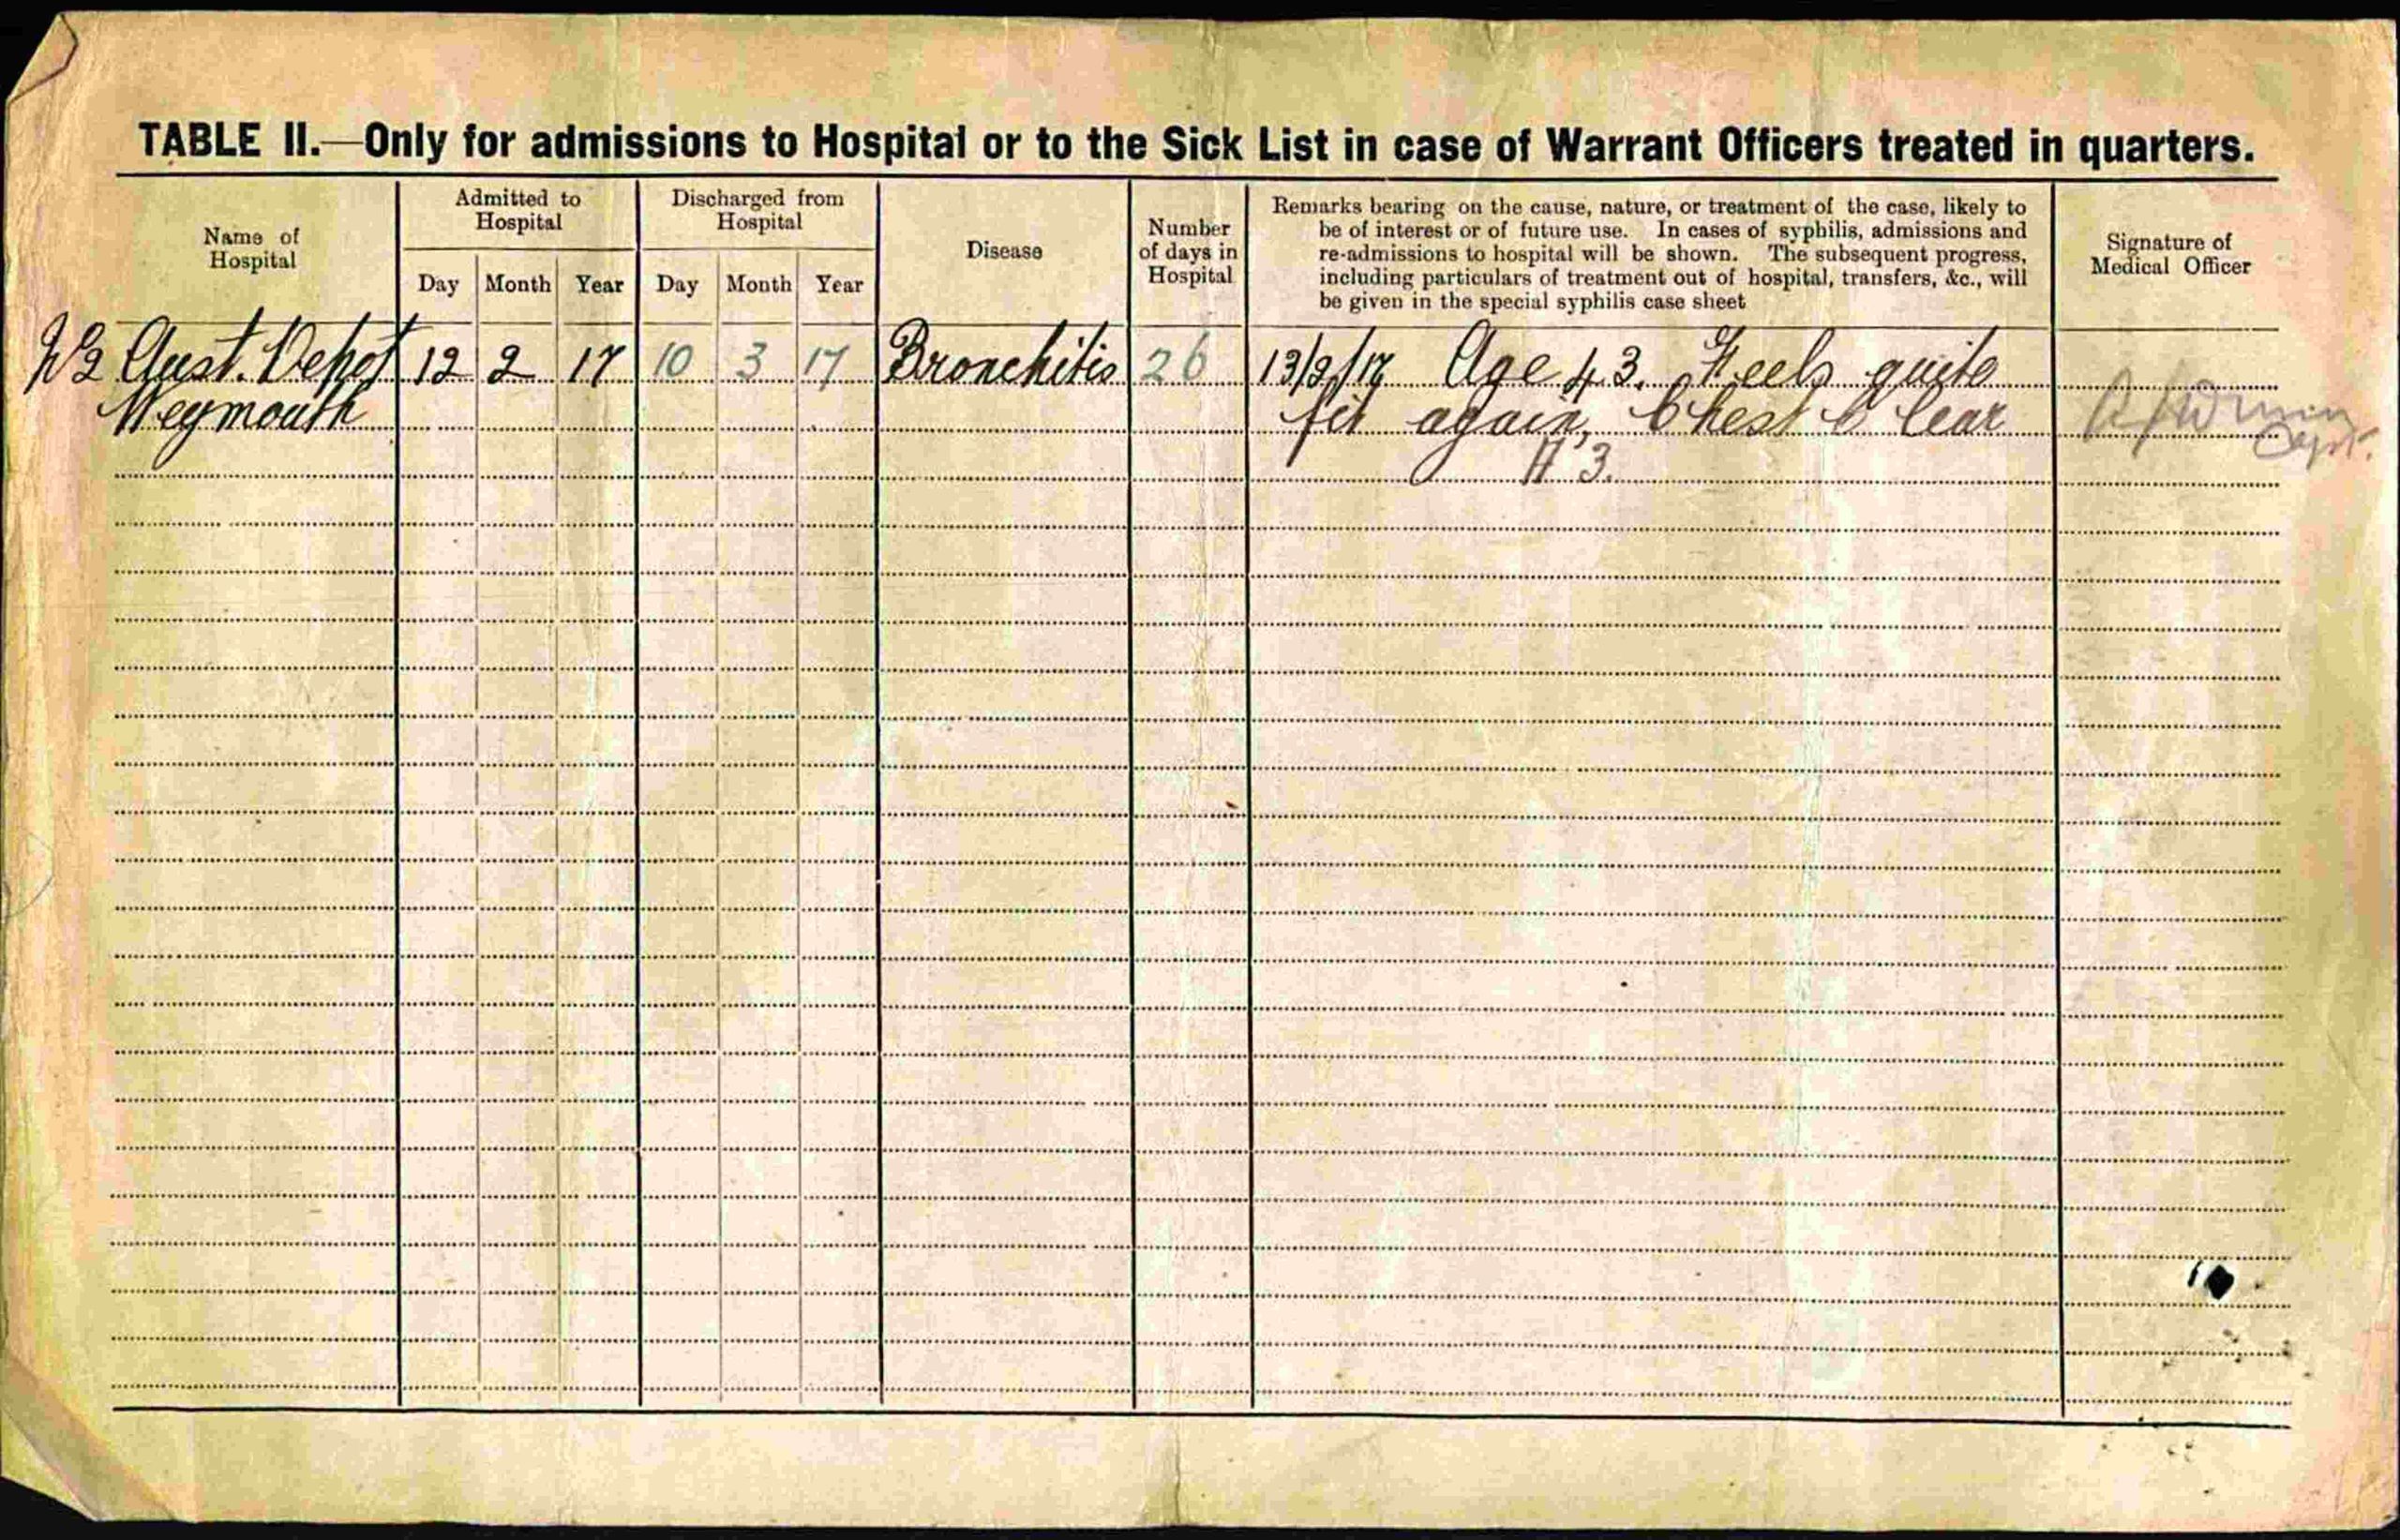 TABLE II.—Only for admissions to Hospital or to the Sick List in case of Warrant Officers treated in quarters.
Name of
Hospital
Admitted to
Hospital
Day Month Year
Discharged from
Hospital
Day Month Year
Disease
Number
of days in
Hospital
Remarks bearing on the cause, nature, or treatment of the case, likely to
be of interest or of future use. In cases of syphilis, admissions and
re-admissions to hospital will be shown. The subsequent progress,
including particulars of treatment out of hospital, transfers, &c., will
be given in the special syphilis case sheet
Signature of
Medical Officer
Aust. Depot 12 2 17 10 3 17 Bronchitis 26 13/2/17 Age 43. Feels quite
Weymouth fit again, Chest Clear
Capt.
A 3.